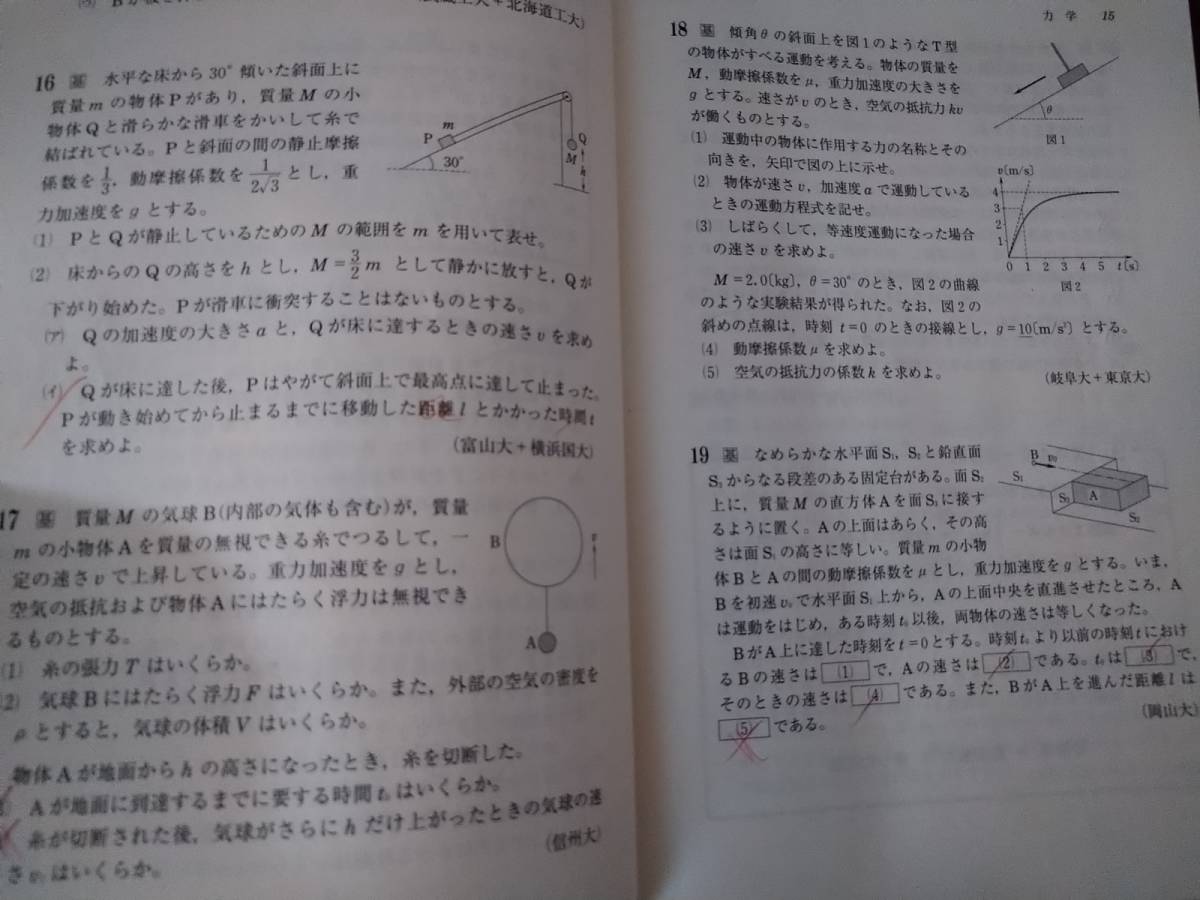 北海道工大)
16 基 水平な床から30°傾いた斜面上に
質量mの物体Pがあり，質量Mの小
物体Qと滑らかな滑車をかいして糸で
結ばれている。Pと斜面の間の静止摩擦
係数を1/3，動摩擦係数を1/2√3とし，重
力加速度をgとする。
P m 30° Q M h
(1) PとQが静止しているためのMの範囲をmを用いて表せ。
(2) 床からのQの高さをhとし，M=3/2 m として静かに放すと，Qが
下がり始めた。Pが滑車に衝突することはないものとする。
(ア) Qの加速度の大きさaと，Qが床に達するときの速さvを求め
よ。
(イ) Qが床に達した後，Pはやがて斜面上で最高点に達して止まった。
Pが動き始めてから止まるまでに移動した距離lとかかった時間t
を求めよ。
(富山大+横浜国大)
17 基 質量Mの気球B(内部の気体も含む)が，質量
mの小物体Aを質量の無視できる糸でつるして，一
定の速さvで上昇している。重力加速度をgとし，
空気の抵抗および物体Aにはたらく浮力は無視でき
るものとする。
B v A
(1) 糸の張力Tはいくらか。
(2) 気球Bにはたらく浮力Fはいくらか。また，外部の空気の密度を
ρとすると，気球の体積Vはいくらか。
物体Aが地面からhの高さになったとき，糸を切断した。
Aが地面に到達するまでに要する時間t₀はいくらか。
糸が切断された後，気球がさらにhだけ上がったときの気球の速
さv₁はいくらか。
(信州大)
力学 15
18 基 傾角θの斜面上を図1のようなT型
の物体がすべる運動を考える。物体の質量を
M，動摩擦係数をμ，重力加速度の大きさを
gとする。速さがvのとき，空気の抵抗力kv
が働くものとする。
θ
図1
(1) 運動中の物体に作用する力の名称とその
向きを，矢印で図の上に示せ。
(2) 物体が速さv，加速度aで運動している
ときの運動方程式を記せ。
(3) しばらくして，等速度運動になった場合
の速さvを求めよ。
v[m/s]
4
3
2
1
0 1 2 3 4 5 t[s]
図2
M=2.0[kg]，θ=30°のとき，図2の曲線
のような実験結果が得られた。なお，図2の
斜めの点線は，時刻t=0のときの接線とし，g=10[m/s²]とする。
(4) 動摩擦係数μを求めよ。
(5) 空気の抵抗力の係数kを求めよ。
(岐阜大+東京大)
19 基 なめらかな水平面S₁，S₂と鉛直面
S₃からなる段差のある固定台がある。面S₂
上に，質量Mの直方体Aを面S₃に接す
るように置く。Aの上面はあらく，その高
さは面S₁の高さに等しい。質量mの小物
体BとAの間の動摩擦係数をμとし，重力加速度をgとする。いま，
Bを初速v₀で水平面S₁上から，Aの上面中央を直進させたところ，A
は運動をはじめ，ある時刻t₀以後，両物体の速さは等しくなった。
B v₀ S₁ S₃ A S₂
BがA上に達した時刻をt=0とする。時刻t₀より以前の時刻tにおけ
るBの速さは (1) で，Aの速さは (2) である。t₀は (3) で，
そのときの速さは (4) である。また，BがA上を進んだ距離lは
(5) である。
(岡山大)